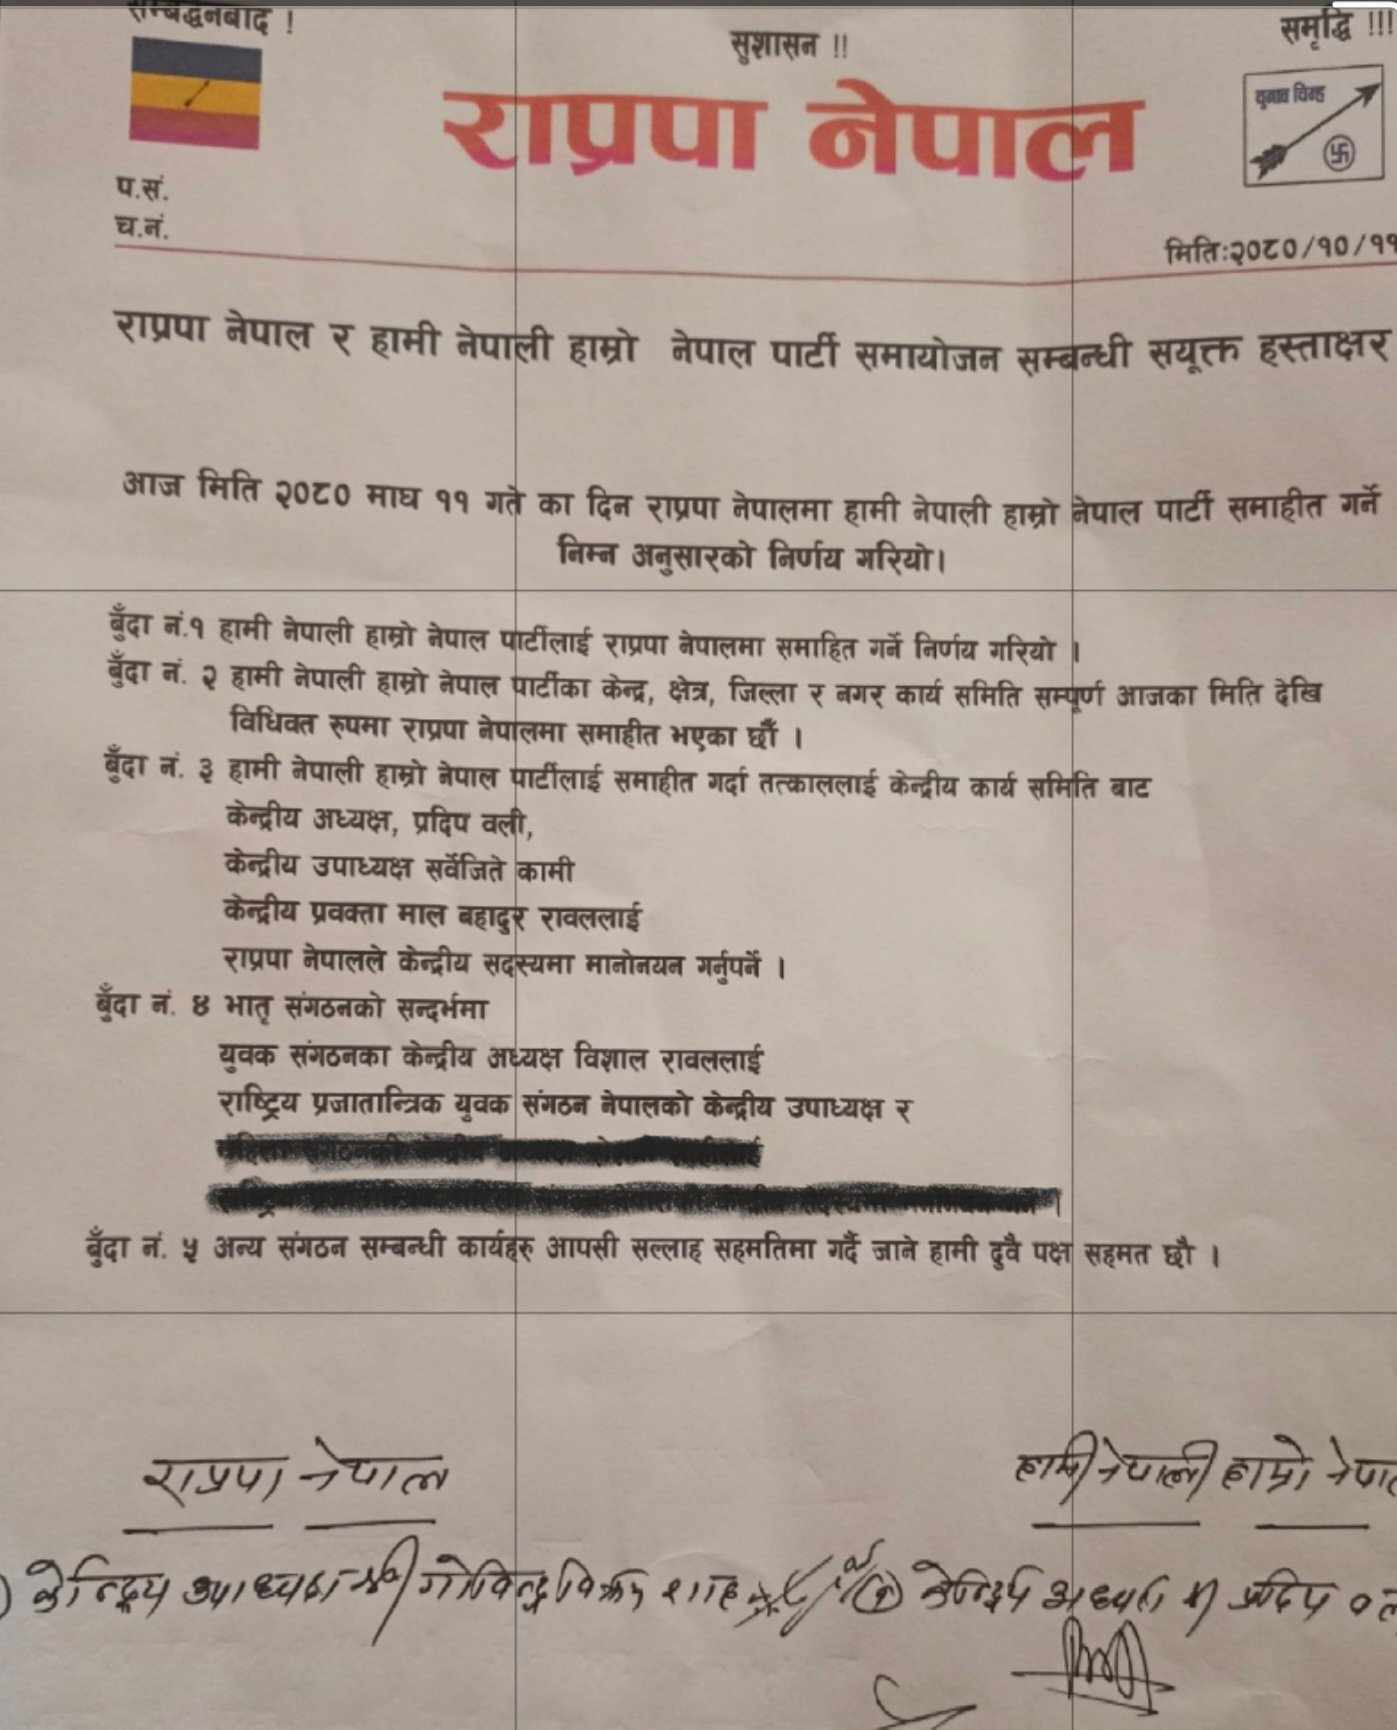 सम्बद्धनबाद !
सुशासन !!
समृद्धि !!!
राप्रपा नेपाल
चुनाव चिन्ह
प.सं.
च.नं.
मिति:२०८०/१०/११
राप्रपा नेपाल र हामी नेपाली हाम्रो नेपाल पार्टी समायोजन सम्बन्धी सयूक्त हस्ताक्षर
आज मिति २०८० माघ ११ गते का दिन राप्रपा नेपालमा हामी नेपाली हाम्रो नेपाल पार्टी समाहीत गर्ने
निम्न अनुसारको निर्णय गरियो।
बुँदा नं.१ हामी नेपाली हाम्रो नेपाल पार्टीलाई राप्रपा नेपालमा समाहित गर्ने निर्णय गरियो ।
बुँदा नं. २ हामी नेपाली हाम्रो नेपाल पार्टीका केन्द्र, क्षेत्र, जिल्ला र नगर कार्य समिति सम्पूर्ण आजका मिति देखि
विधिवत रुपमा राप्रपा नेपालमा समाहीत भएका छौँ ।
बुँदा नं. ३ हामी नेपाली हाम्रो नेपाल पार्टीलाई समाहीत गर्दा तत्काललाई केन्द्रीय कार्य समिति बाट
केन्द्रीय अध्यक्ष, प्रदिप वली,
केन्द्रीय उपाध्यक्ष सर्वेजिते कामी
केन्द्रीय प्रवक्ता माल बहादुर रावललाई
राप्रपा नेपालले केन्द्रीय सदस्यमा मानोनयन गर्नुपर्ने ।
बुँदा नं. ४ भातृ संगठनको सन्दर्भमा
युवक संगठनका केन्द्रीय अध्यक्ष विशाल रावललाई
राष्ट्रिय प्रजातान्त्रिक युवक संगठन नेपालको केन्द्रीय उपाध्यक्ष र
बुँदा नं. ५ अन्य संगठन सम्बन्धी कार्यहरु आपसी सल्लाह सहमतिमा गर्दै जाने हामी दुवै पक्ष सहमत छौ ।
राप्रपा नेपाल
हामी नेपाली हाम्रो नेपाल
केन्द्रिय उपाध्यक्ष श्री गोविन्द्र विक्रम शाह
१ केन्द्रिय अध्यक्ष श्री प्रदिप वली